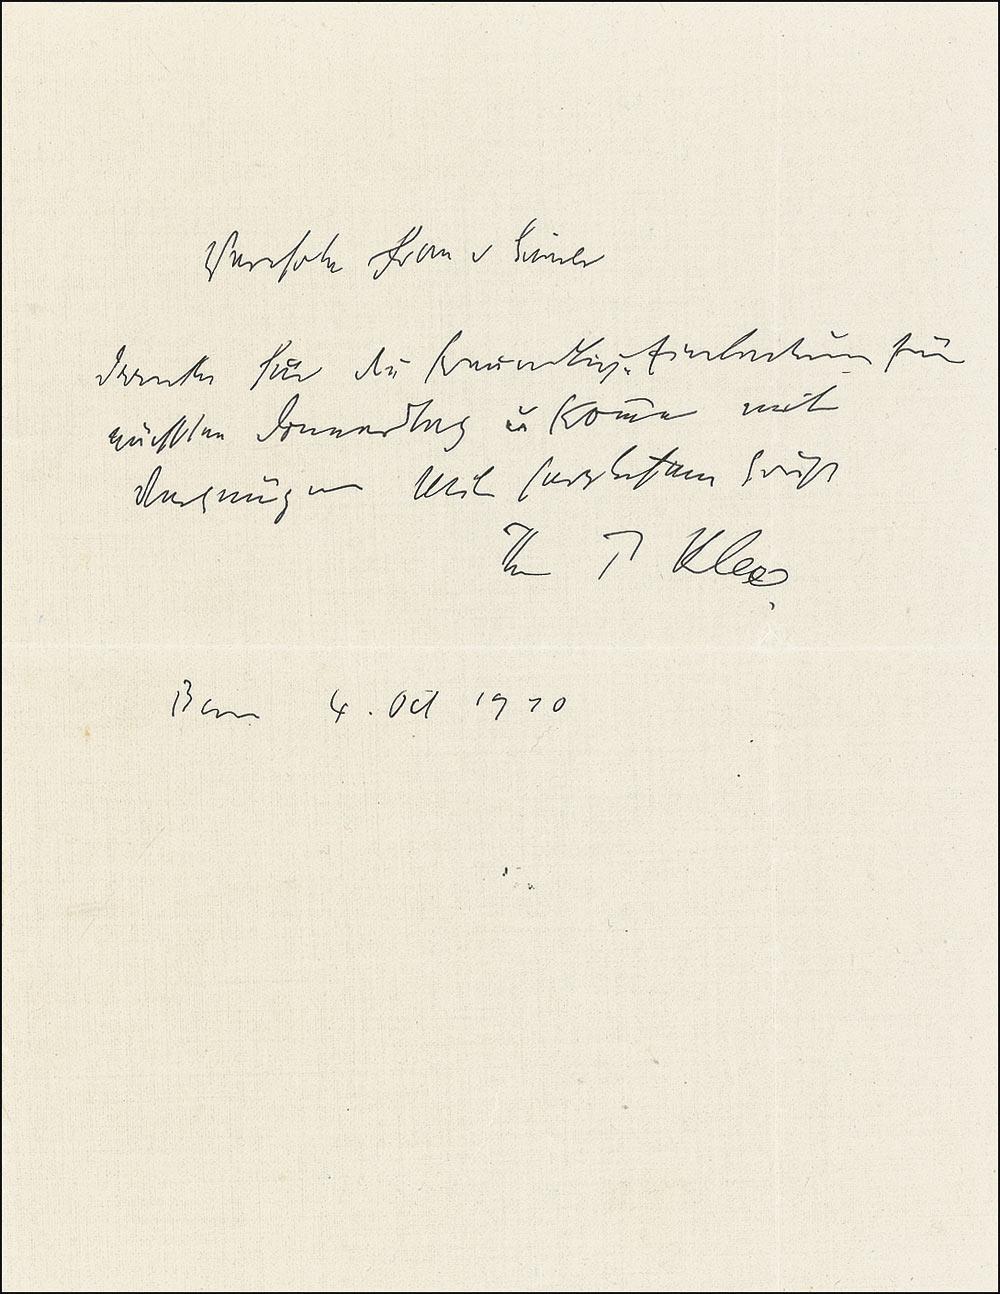 Verehrte Frau v
danke für die freundliche Einladung für
nächsten Donnerstag u. komme mit
Vergnügen Mit herzlichem Gruss
Ihr P Klee
Bern 4. Oct 1910